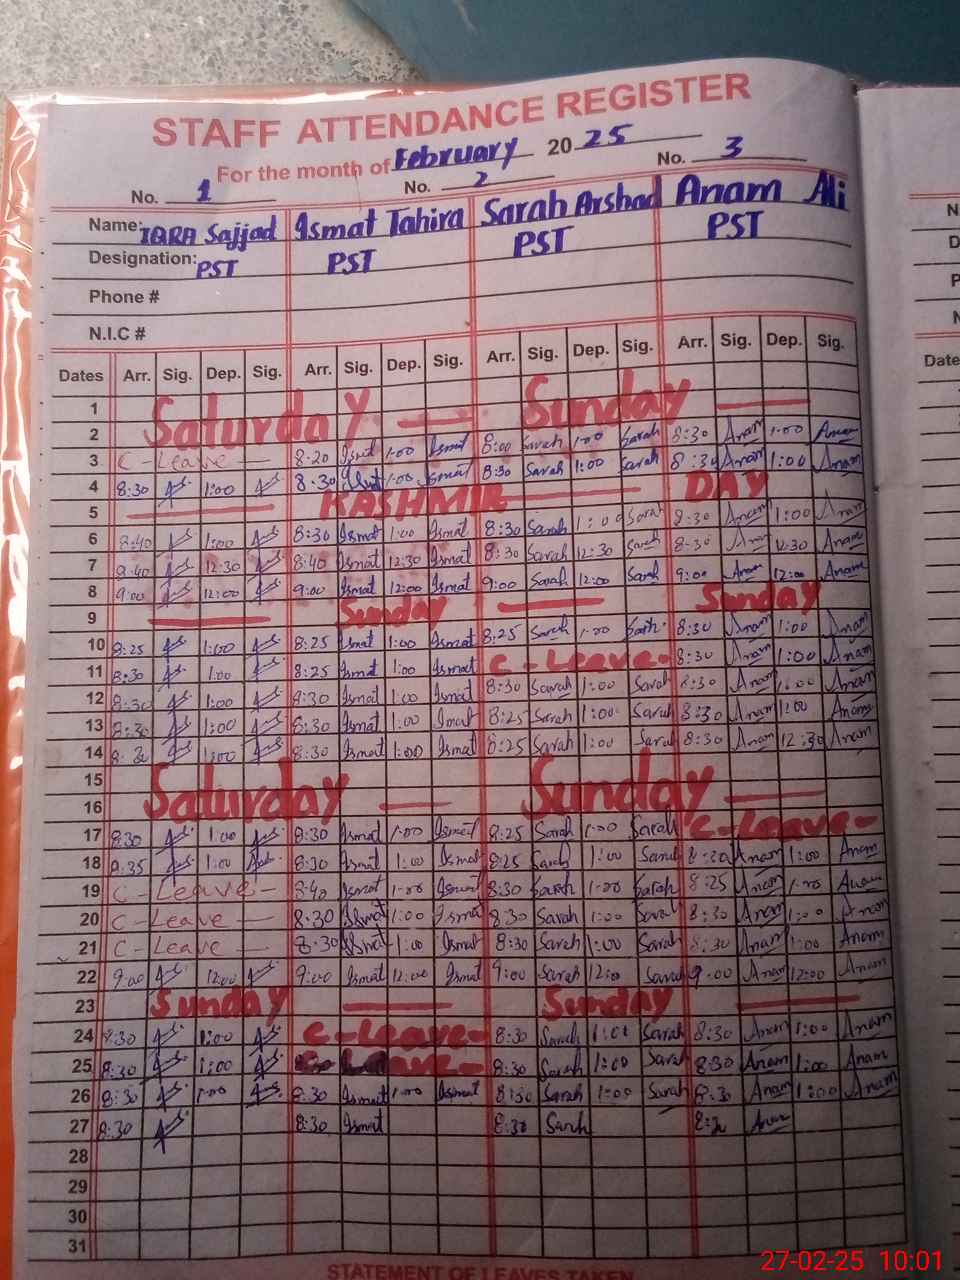 STAFF ATTENDANCE REGISTER
For the month of February 2025
No. 1 No. 2 No. 3
Name: IQRA Sajjad Ismat Tahira Sarah Arshad Anam Ali
Designation: PST PST PST PST
Phone #
N.I.C #
Dates Arr. Sig. Dep. Sig. Arr. Sig. Dep. Sig. Arr. Sig. Dep. Sig. Arr. Sig. Dep. Sig.
1 Saturday — Sunday —
2
3 C-Leave — 8:20 Ismat 1:00 Ismat 8:00 Sarah 1:00 Sarah 8:30 Anam 1:00 Anam
4 8:30 1:00 8:30 Ismat 1:00 Ismat 8:30 Sarah 1:00 Sarah 8:30 Anam 1:00 Anam
5 — KASHMIR — DAY
6 8:40 1:00 8:30 Ismat 1:00 Ismat 8:30 Sarah 1:00 Sarah 8:30 Anam 1:00 Anam
7 12:30 8:40 Ismat 12:30 Ismat 8:30 Sarah 12:30 Sarah 8:30 Anam 12:30 Anam
8 9:00 12:00 9:00 Ismat 12:00 Ismat 9:00 Sarah 12:00 Sarah 9:00 Anam 12:00 Anam
9 — Sunday — Sunday
10 8:25 1:00 8:25 Ismat 1:00 Ismat 8:25 Sarah 1:00 Sarah 8:30 Anam 1:00 Anam
11 8:30 1:00 8:25 Ismat 1:00 Ismat C-Leave- 8:30 Anam 1:00 Anam
12 8:30 1:00 8:30 Ismat 1:00 Ismat 8:30 Sarah 1:00 Sarah 8:30 Anam 1:00 Anam
13 8:30 1:00 8:30 Ismat 1:00 Imat 8:25 Sarah 1:00 Sarah 8:30 Anam 1:00 Anam
14 8:30 1:00 8:30 Ismat 1:00 Ismat 8:25 Sarah 1:00 Sarah 8:30 Anam 12:30 Anam
15 Saturday — Sunday —
16
17 8:30 1:00 8:30 Ismat 1:00 Ismat 8:25 Sarah 1:00 Sarah C-Leave-
18 8:35 1:00 8:30 Ismat 1:00 Ismat 8:25 Sarah 1:00 Sarah 8:30 Anam 1:00 Anam
19 C-Leave- 8:40 Ismat 1:00 Ismat 8:30 Sarah 1:00 Sarah 8:25 Anam 1:00 Anam
20 C-Leave — 8:30 Ismat 1:00 Ismat 8:30 Sarah 1:00 Sarah 8:30 Anam 1:00 Anam
21 C-Leave — 8:30 Ismat 1:00 Ismat 8:30 Sarah 1:00 Sarah 8:30 Anam 1:00 Anam
22 9:00 12:00 9:00 Ismat 12:00 Ismat 9:00 Sarah 12:00 Sarah 9:00 Anam 12:00 Anam
23 Sunday — Sunday —
24 8:30 1:00 C-Leave- 8:30 Sarah 1:00 Sarah 8:30 Anam 1:00 Anam
25 8:30 1:00 Leave- 8:30 Sarah 1:00 Sarah 8:30 Anam 1:00 Anam
26 8:30 1:00 8:30 Ismat 1:00 Ismat 8:30 Sarah 1:00 Sarah 8:30 Anam 1:00 Anam
27 8:30 8:30 Ismat 8:30 Sarah 8:30 Anam
28
29
30
31
STATEMENT OF LEAVES TAKEN
Date
27-02-25 10:01